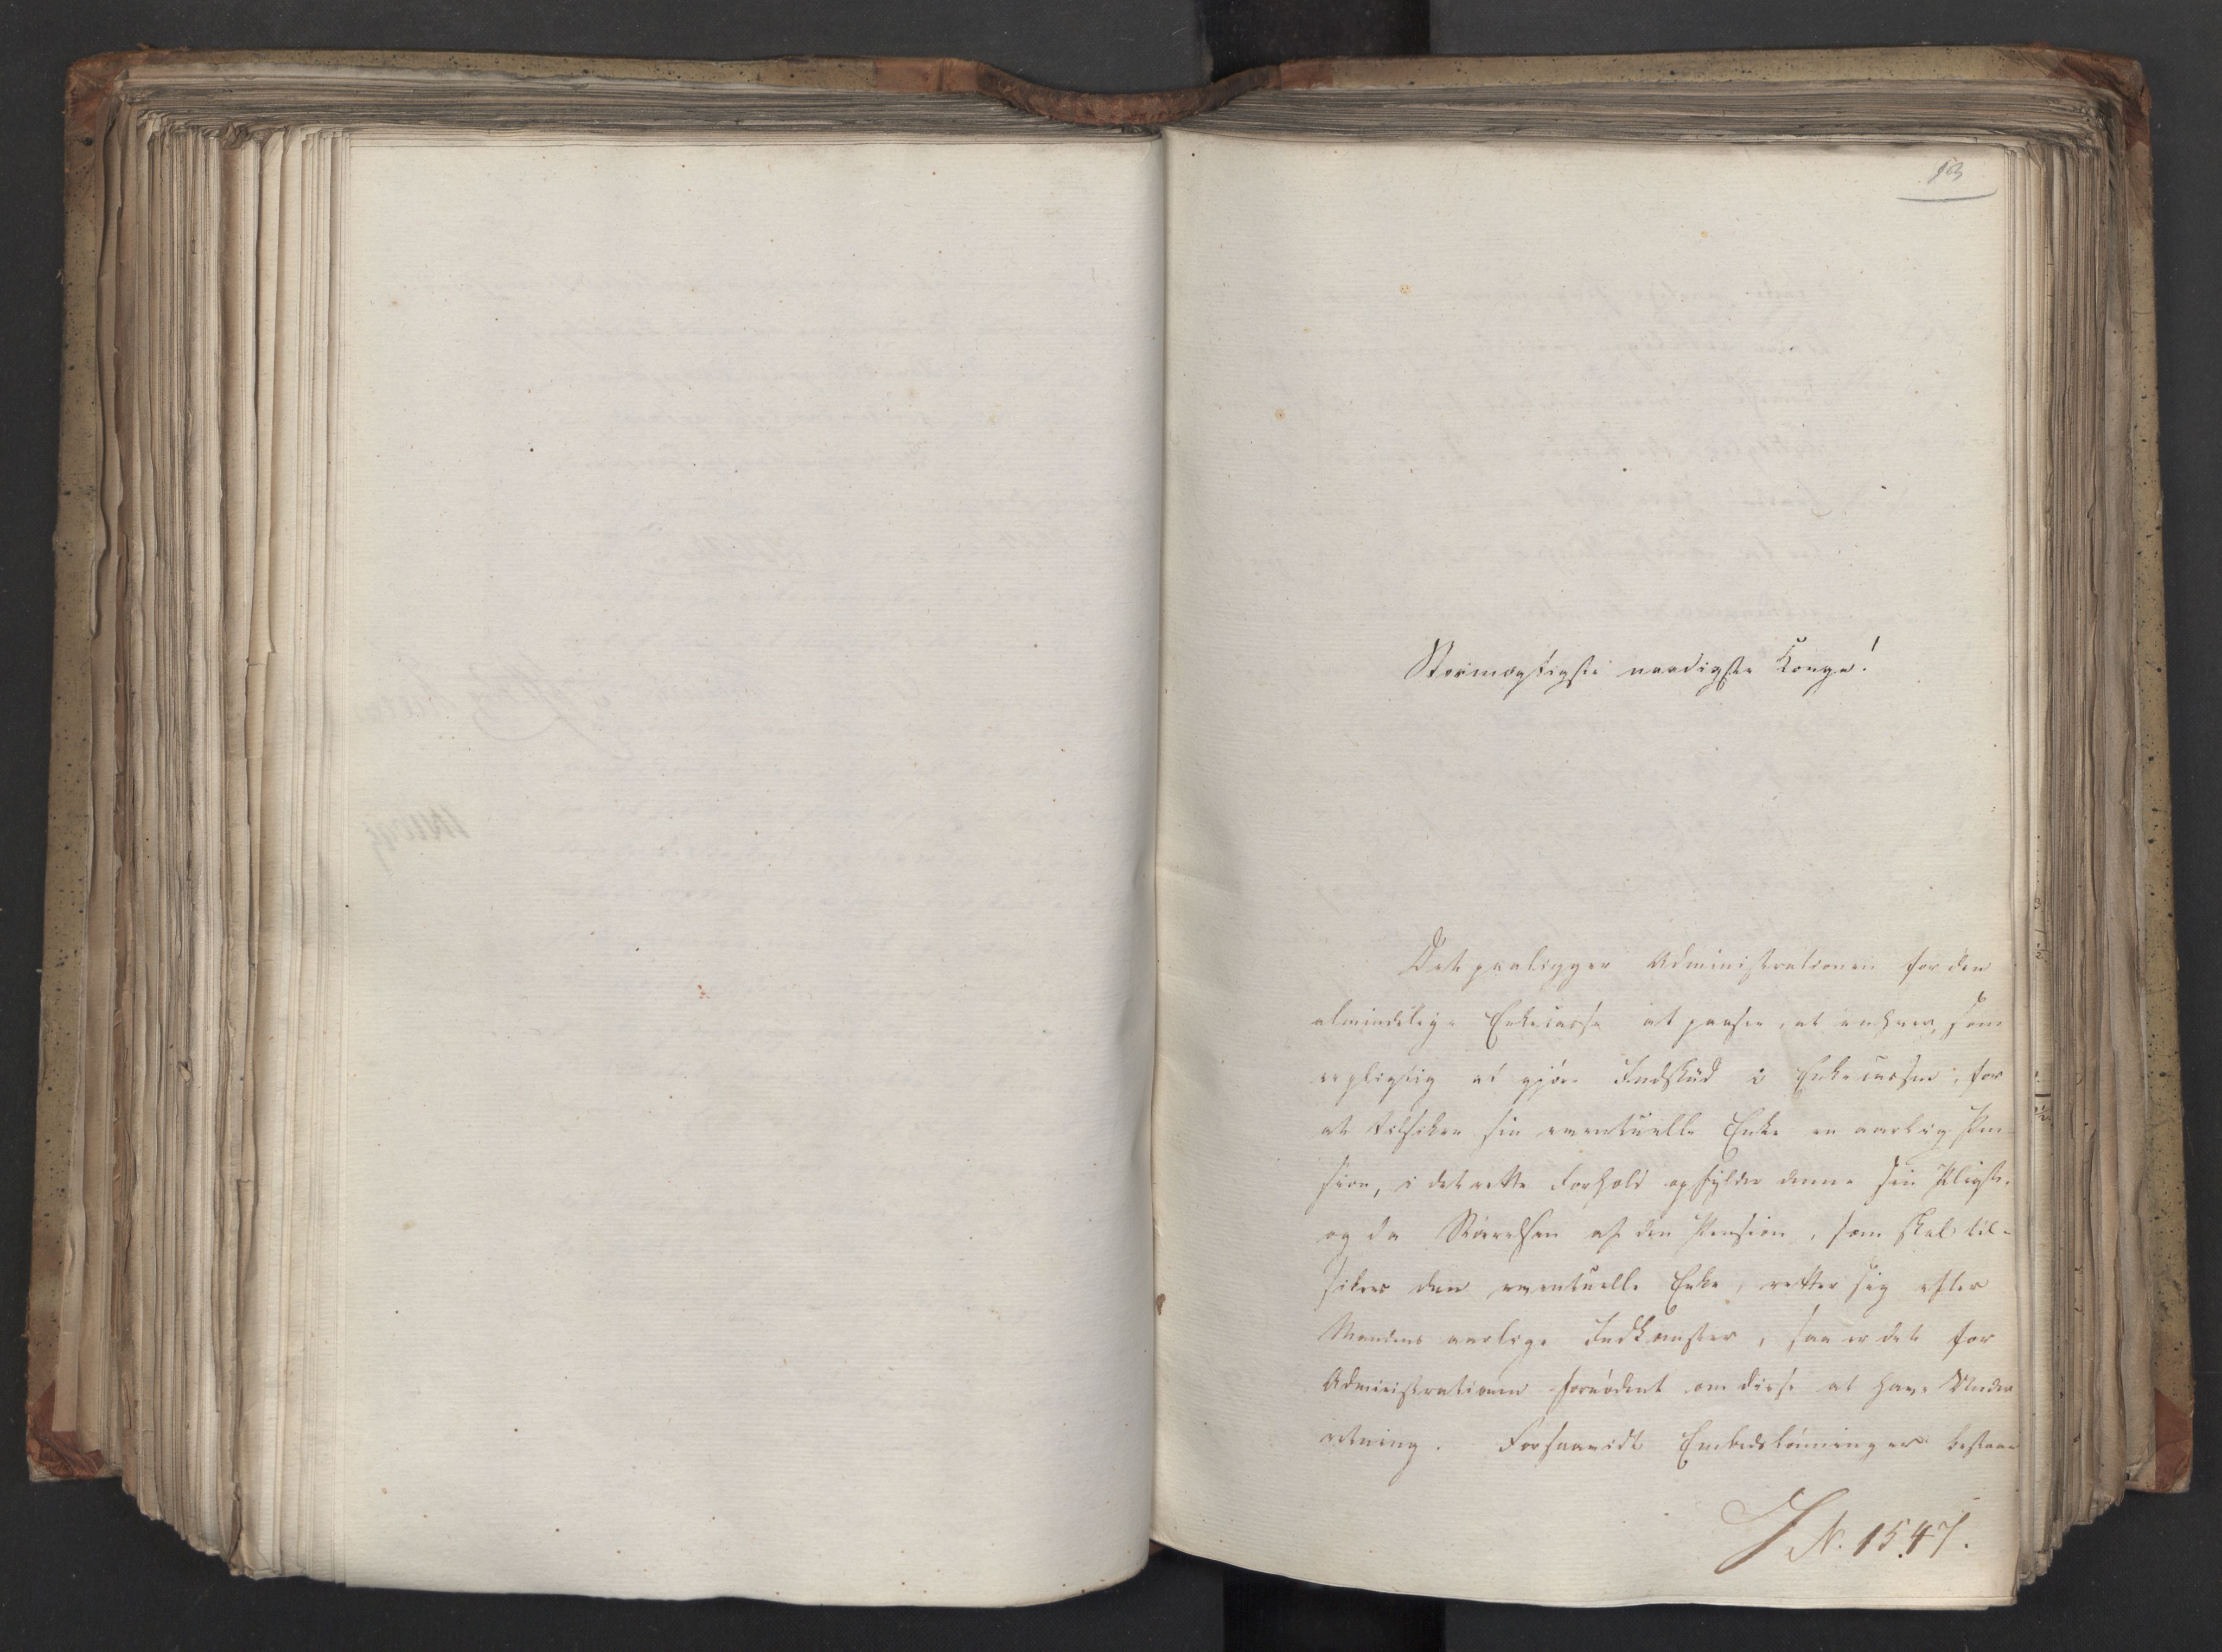 53
Stormægtigste naadigste Konge!
Det paaligger Administrationen for den
almindelige Enkecasse at paasee, at enhver, som
er pligtig at gjøre Indskud i Enkecassen, for
at tilsikre sin eventuelle Enke en aarlig Pen
sion, i det rette Forhold opfylder denne sin Pligt,
og da Størrelsen af den Pension, som skal til-
sikres den eventuelle Enke, retter sig efter
Mandens aarlige Indkomster, saa er det for
Administrationen fornødent om disse at have Under
retning. Forsaavidt Embedslønninger bestaae
J N. 1547.